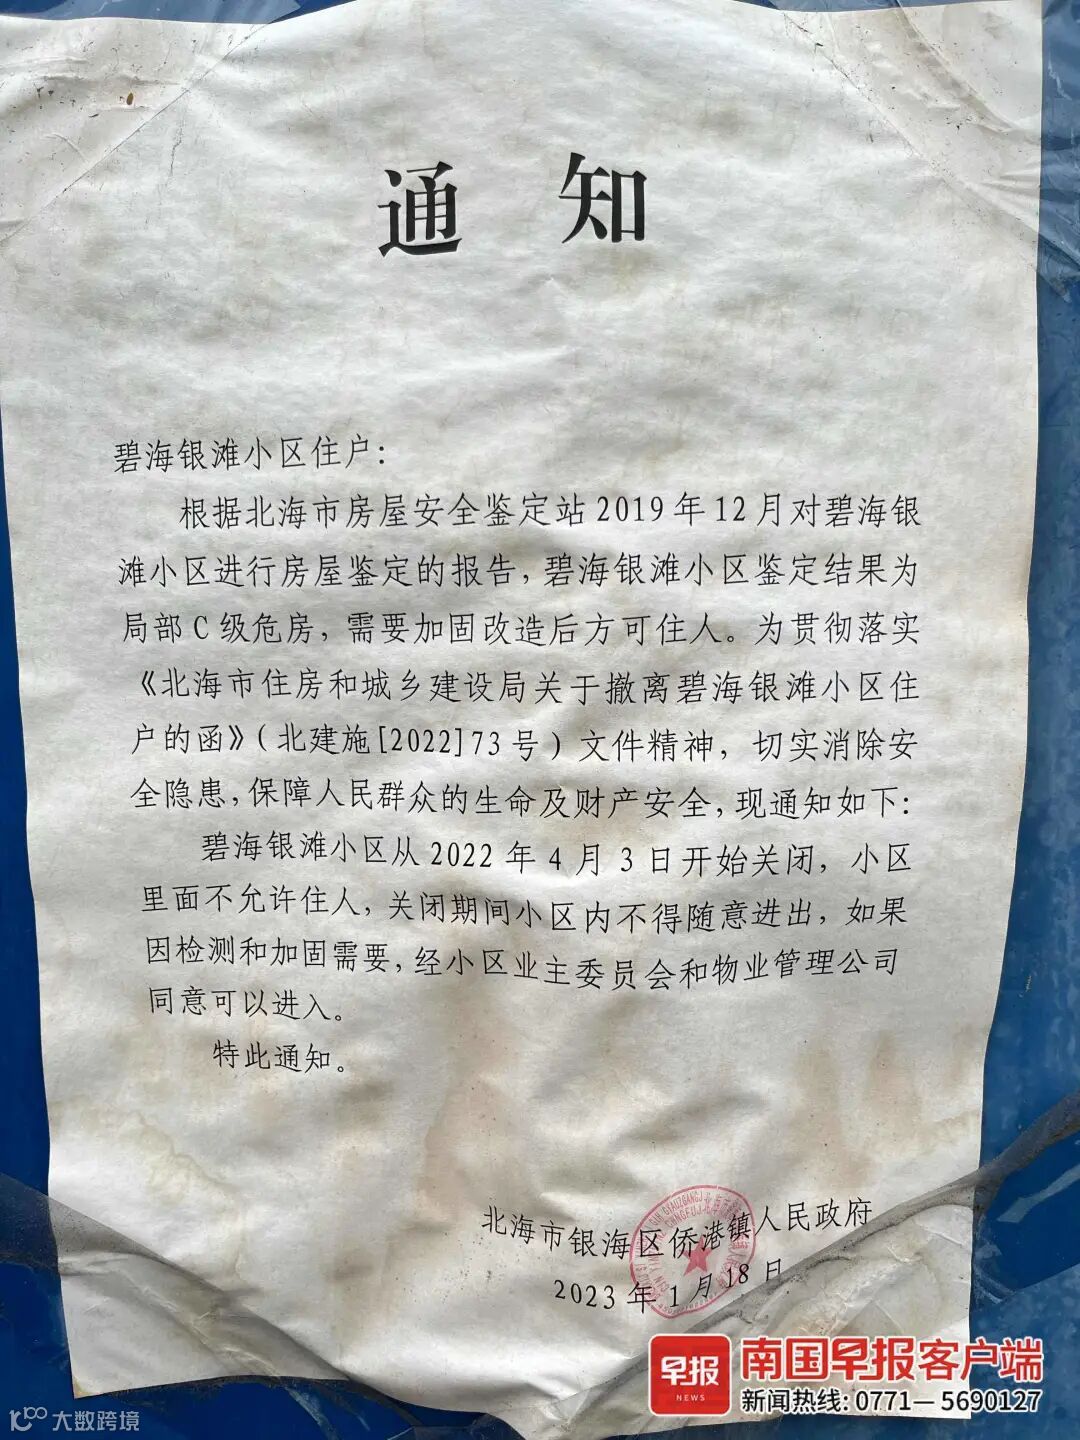 通知
碧海银滩小区住户：
根据北海市房屋安全鉴定站2019年12月对碧海银
滩小区进行房屋鉴定的报告，碧海银滩小区鉴定结果为
局部C级危房，需要加固改造后方可住人。为贯彻落实
《北海市住房和城乡建设局关于撤离碧海银滩小区住
户的函》（北建施[2022]73号）文件精神，切实消除安
全隐患，保障人民群众的生命及财产安全，现通知如下：
碧海银滩小区从2022年4月3日开始关闭，小区
里面不允许住人，关闭期间小区内不得随意进出，如果
因检测和加固需要，经小区业主委员会和物业管理公司
同意可以进入。
特此通知。
北海市银海区侨港镇人民政府
2023年1月18日
早报
NEWS
南国早报客户端
新闻热线：0771—5690127
大数跨境